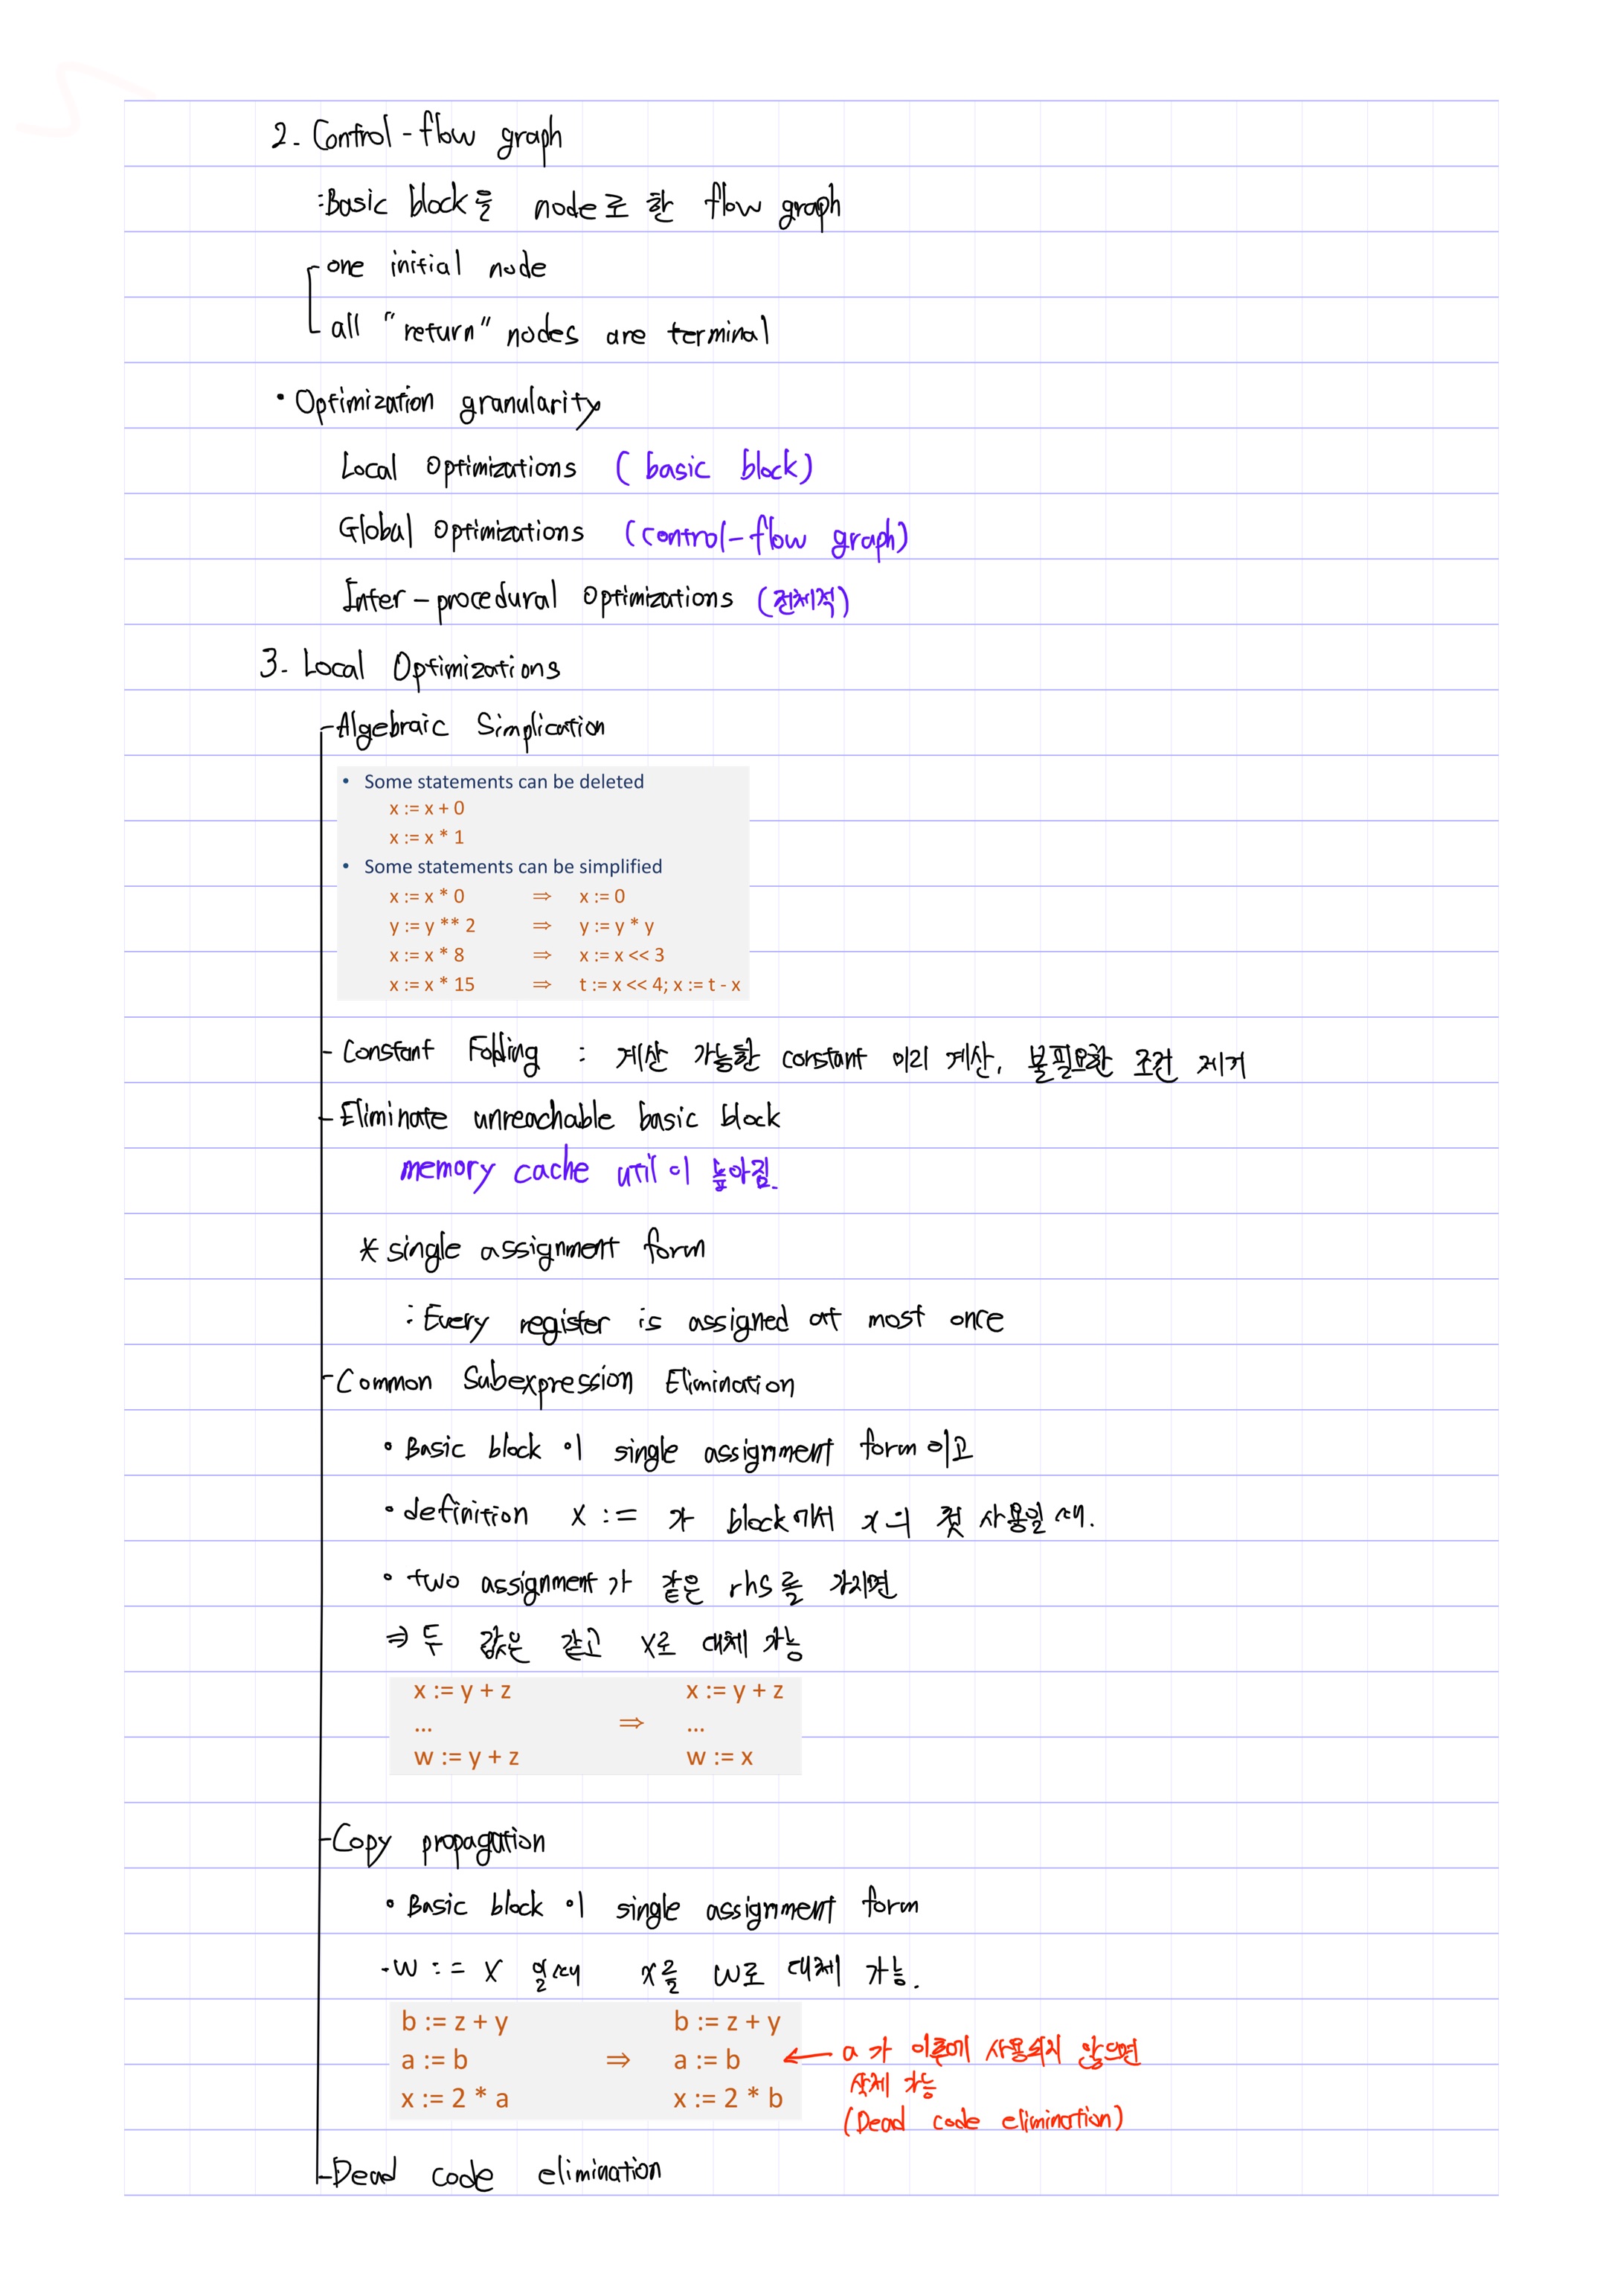 2. Control-flow graph
: Basic block을 node로 한 flow graph
one initial node
all "return" nodes are terminal
• Optimization granularity
Local Optimizations (basic block)
Global Optimizations (control-flow graph)
Inter-procedural Optimizations (전체적)
3. Local Optimizations
- Algebraic Simplication
• Some statements can be deleted
x := x + 0
x := x * 1
• Some statements can be simplified
x := x * 0 ⇒ x := 0
y := y ** 2 ⇒ y := y * y
x := x * 8 ⇒ x := x << 3
x := x * 15 ⇒ t := x << 4; x := t - x
- Constant Folding : 계산 가능한 constant 미리 계산, 불필요한 조건 제거
- Eliminate unreachable basic block
memory cache util이 높아짐.
* single assignment form
: Every register is assigned at most once
- Common Subexpression Elimination
• Basic block이 single assignment form이고
• definition x := 가 block에서 x의 첫 사용일 때.
• two assignment가 같은 rhs를 가지면
⇒ 두 값은 같고 x로 대체 가능
x := y + z x := y + z
... ⇒ ...
w := y + z w := x
- Copy propagation
• Basic block이 single assignment form
- w := x 일 때 x를 w로 대체 가능.
b := z + y b := z + y
a := b ⇒ a := b ← a가 이후에 사용되지 않으면
x := 2 * a x := 2 * b 삭제 가능
(Dead code elimination)
- Dead code elimination